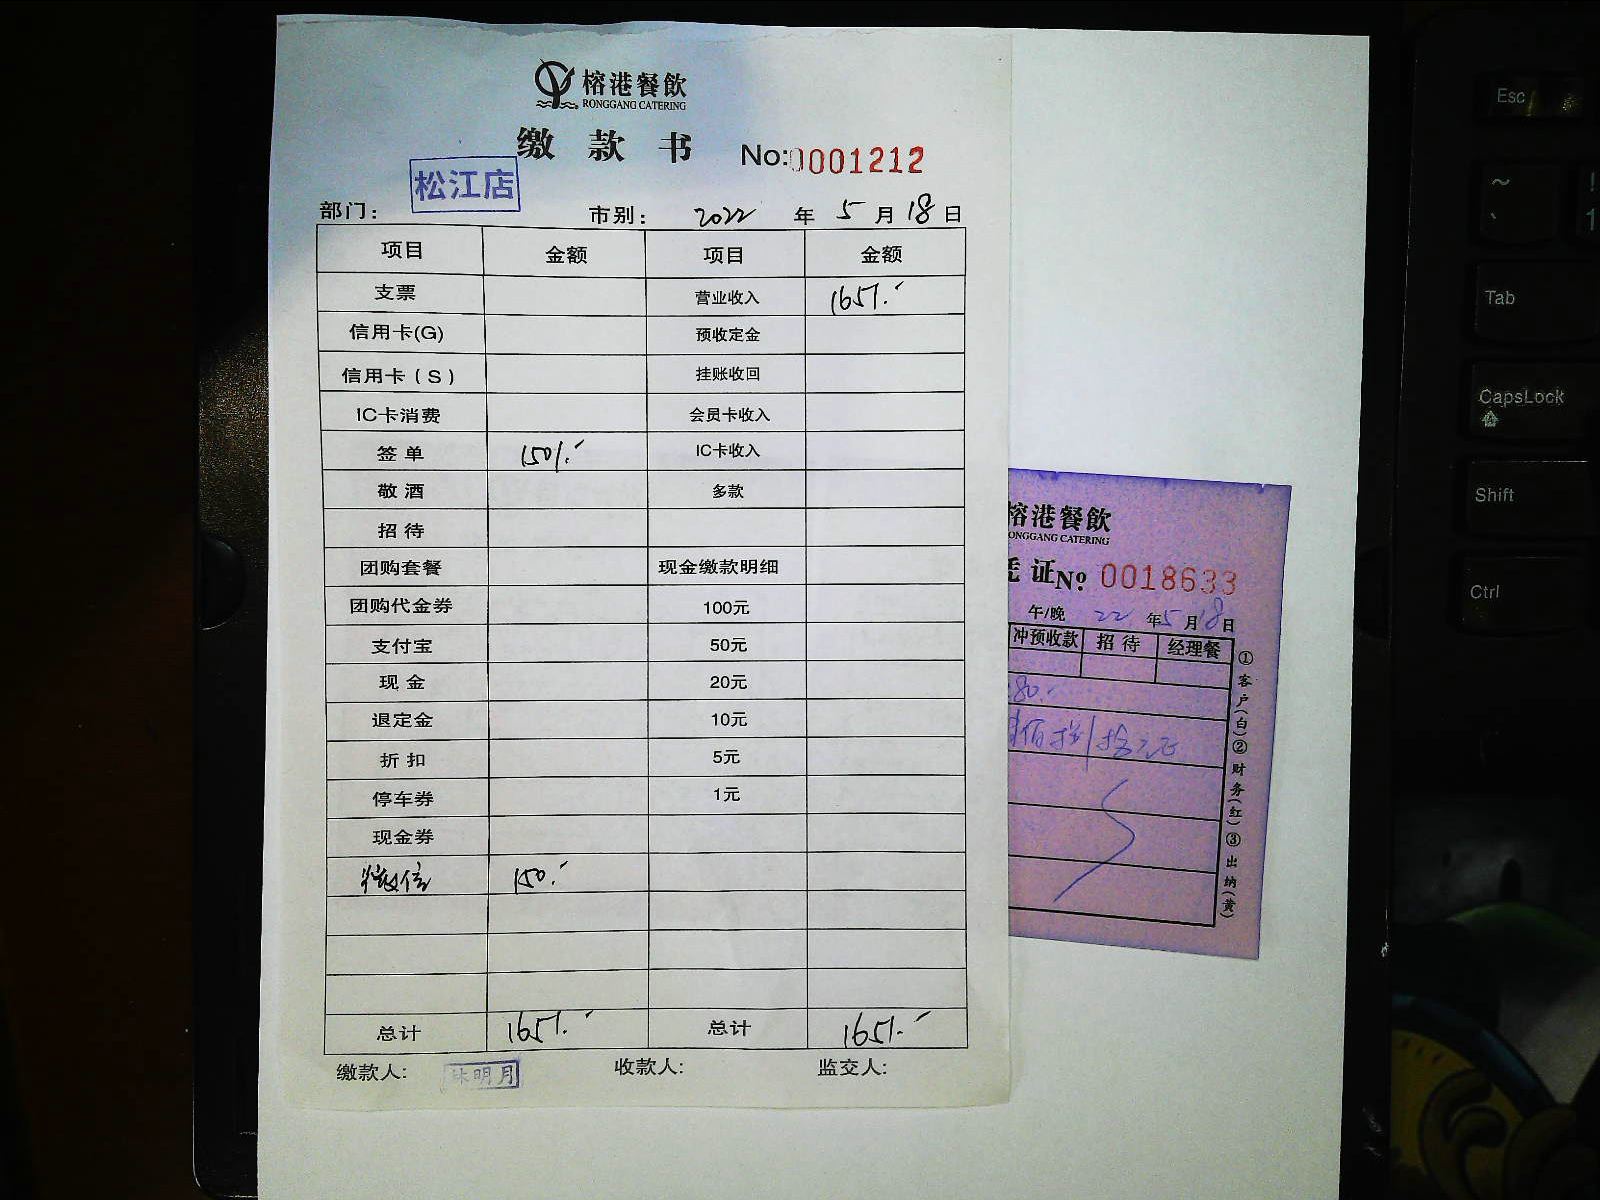 榕港餐飲
RONGGANG CATERING
缴款书
No:0001212
松江店
部门： 市别： 2022 年 5 月 18 日
项目 金额 项目 金额
支票 营业收入 1651.-
信用卡(G) 预收定金
信用卡（S） 挂账收回
IC卡消费 会员卡收入
签单 1501.- IC卡收入
敬酒 多款
招待
团购套餐 现金缴款明细
团购代金券 100元
支付宝 50元
现金 20元
退定金 10元
折扣 5元
停车券 1元
现金券
微信 150.-
总计 1651.- 总计 1651.-
缴款人: 明月 收款人: 监交人:
榕港餐飲
ONGGANG CATERING
证 No 0018633
午/晚 22 年 5 月 18 日
冲预收款 招待 经理餐
80.-
①客户(白)②财务(红)③出纳(黄)
Esc
~
、
!
1
Tab
CapsLock
Shift
Ctrl